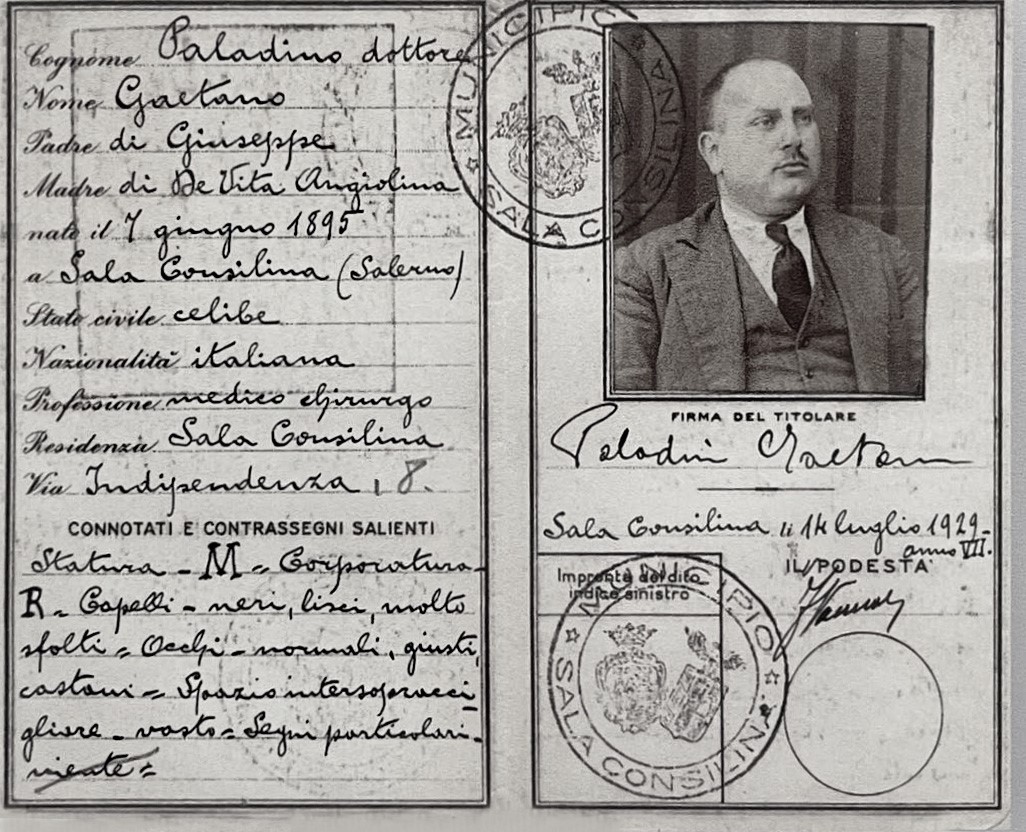 Cognome Paladino dottore
Nome Gaetano
Padre di Giuseppe
Madre di De Vita Angiolina
nato il 7 giugno 1895
a Sala Consilina (Salerno)
Stato civile celibe
Nazionalità italiana
Professione medico chirurgo
Residenza Sala Consilina
Via Indipendenza, 8.
CONNOTATI E CONTRASSEGNI SALIENTI
Statura - M = Corporatura -
R = Capelli - neri, lisci, molto
sfolti = Occhi - normali, giusti,
castani = Spazio intersopracci
gliare - vasto = Segni particolari -
niente =
MUNICIPIO
SALA CONSILINA
FIRMA DEL TITOLARE
Paladino Gaetano
Sala Consilina li 14 luglio 1929 -
anno VII.
IL PODESTA'
Impronta del dito
indice sinistro
MUNICIPIO
SALA CONSILINA